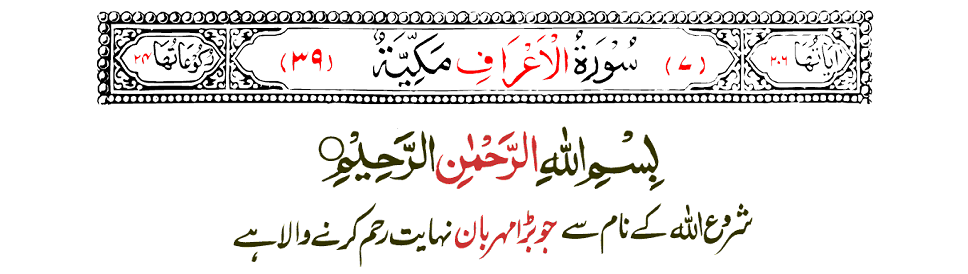 اٰیَاتُهَا ٢٠٦ (٧) سُوْرَةُ الْاَعْرَافِ مَكِّیَّةٌ (٣٩) رُكُوْعَاتُهَا ٢٤
بِسْمِ اللّٰهِ الرَّحْمٰنِ الرَّحِیْمِ○
شروع اللہ کے نام سے جو بڑا مہربان نہایت رحم کرنے والا ہے